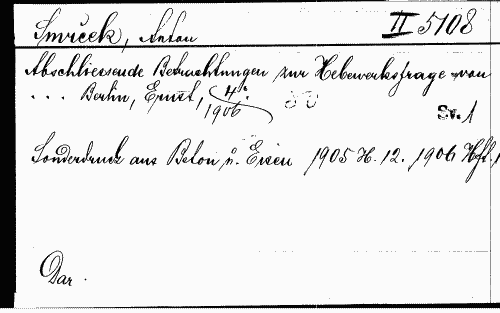 Smrček, Anton II 5108
Abschliessende Betrachtungen zur Hebewerksfrage von
... Berlin, Ernst, 4°.
1906
Sv. 1
Sonderdruck aus Beton u. Eisen 1905 H. 12. 1906 Hft. 1
Dar.